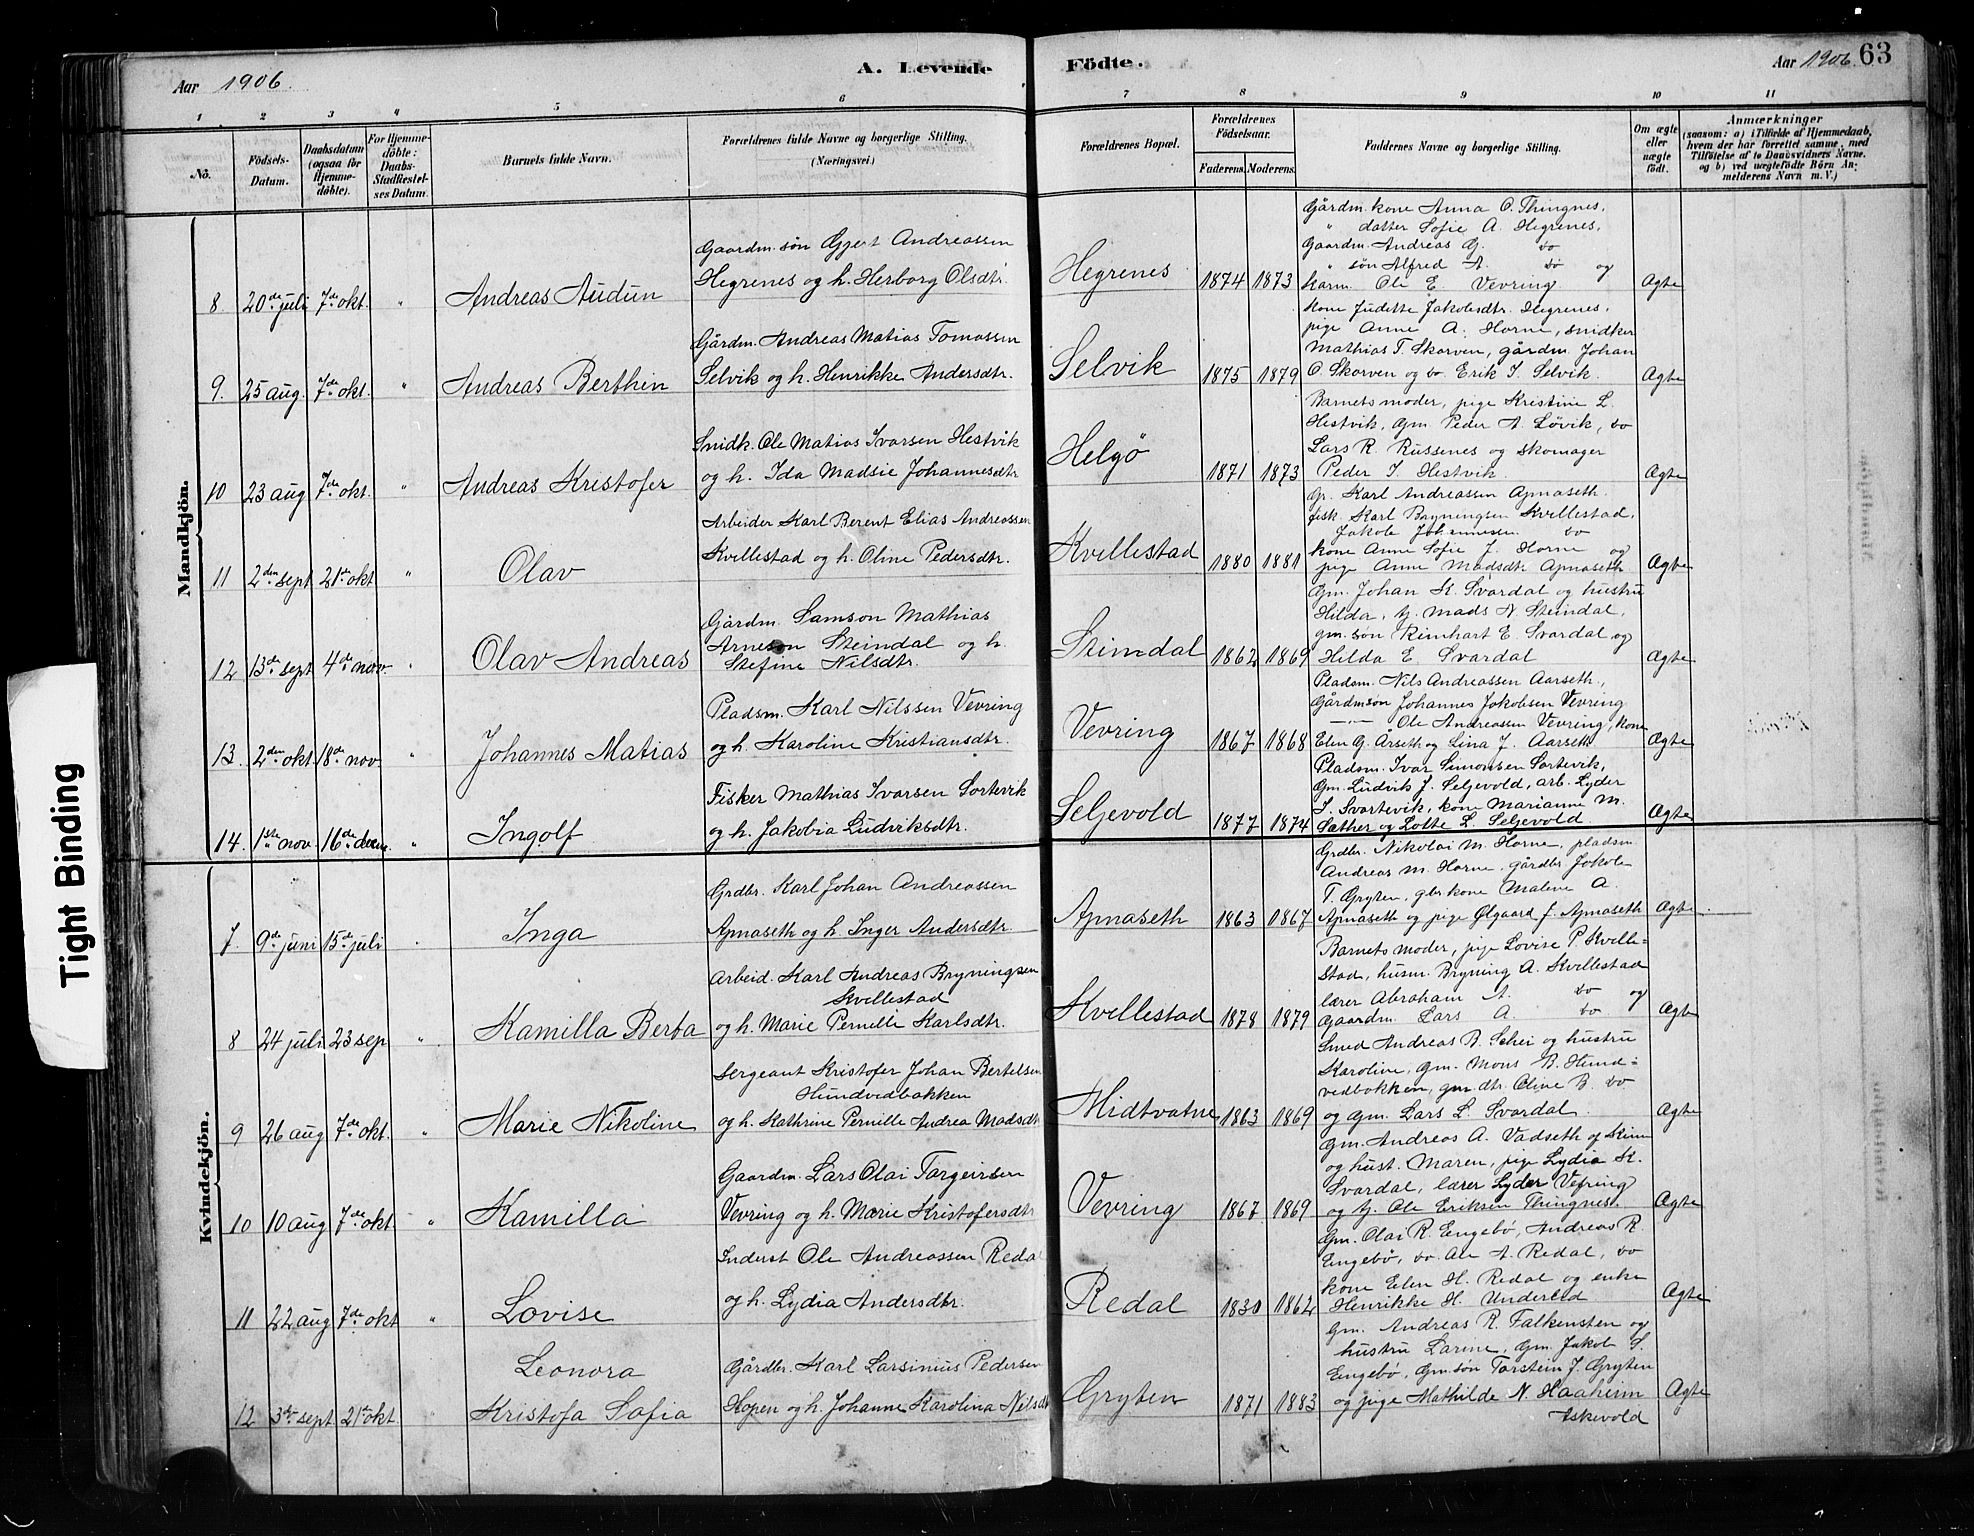 Aar 1906.
A. Levende
Födte.
Aar 1906. 63
1 2 3 4 5 6 7 8 9 10 11
No.
Födsels-Datum.
Daabsdatum (ogsaa for Hjemme-döbte).
For Hjemme-döbte: Daabs-Stadfæstel-ses Datum.
Barnets fulde Navn.
Forældrenes fulde Navne og borgerlige Stilling. (Næringsvei)
Forældrenes Bopæl.
Forældrenes Födselsaar.
Faderens. Moderens.
Faddernes Navne og borgerlige Stilling.
Om ægte eller uægte födt.
Anmærkninger
(saasom: a) i Tilfælde af Hjemmedaab, hvem der har forrettet samme, med Tilföielse af to Daabsvidners Navne, og b) ved uægtefödte Börn An-melderens Navn m. V.)
Mandkjön.
Gaardm. søn Gjert Andreassen
Hegrenes og h. Herborg Olsdtr.
8 20de juli 7de okt. " Andreas Audun
Hegrenes 1874 1873
Gårdm. kone Anna O. Thingnes,
" datter Sofie A. Hegrenes,
Gaardm. Andreas G. do
" søn Alfred A. do og
Karm. Ole E. Vevring Ægte
Gårdm. Andreas Matias Tomassen
Selvik og h. Henrikke Andersdtr.
9. 25 aug. 7de okt. " Andreas Berthin
Selvik 1875 1879
Kone Judette Jakobsdtr. Hegrenes,
pige Anne A. Horne, snidker
Mathias T. Skorven, gårdm. Johan
O. Skorven og do. Erik I. Selvik. Ægte
Snidk. Ole Matias Ivarsen Hestvik
og h. Ida Madsie Johannesdtr.
10 23 aug 7de okt. " Andreas Kristofer
Helgö 1871 1873
Barnets moder, pige Kristine L.
Hestvik, Gm. Peder A. Løvik, do
Lars R. Russenes og skomager
Peder I. Hestvik. Ægte
Arbeider Karl Berent Elias Andreassen
Kvellestad og h. Oline Pedersdtr.
11 2den sept. 21de okt " Olav
Kvellestad 1880 1881
Karl Andreassen Apnaseth.
fisk. Karl Bryningsen Kvellestad,
Jakob Johannessen do
kone Anne Sofie J. Horne og
pige Anne Madsdtr. Apnaseth Ægte
Gårdm. Samson Mathias
Arneson Steindal og h.
Stefine Nilsdtr.
12 13de sept 4de nov. " Olav Andreas
Steindal 1862 1869
Gm. Johan K. Svardal og hustru
Hilda, Mads N. Steindal,
gm. søn Reinhart E. Svardal og
Hilda E. Svardal Ægte
Pladsm. Karl Nilssen Vevring
og h. Karoline Kristiansdtr.
13. 2den okt. 18de nov. " Johannes Matias
Vevring 1867 1868
Pladsm. Nils Andreassen Aarseth,
Gårdmsøn Johannes Jakobsen Vevring
—"— Ole Andreassen Vevring, kone
Elen G. Årseth og Lina J. Aarseth Ægte
Fisker Mathias Ivarsen Sortevik
og h. Jakobia Ludviksdtr.
14. 1ste nov. 16de decm. " Ingolf
Seljevold 1877 1874
Pladsm. Ivar Simonsen Sortevik,
Gm. Ludvik J. Seljevold, arb. Lyder
I. Svartevik, kone Marianne M.
Sæther og Lotte L. Seljevold Ægte
Kvindekjön.
Grdbr. Karl Johan Andreassen
Apnaseth og h. Inger Andersdtr.
7. 9de juni 15de juli " Inga
Apnaseth 1863 1867
Grdbr. Nikolai M. Horne, pladsm.
Andreas M. Horne, gårdbr Jakob
T. Gryten, gbr kone Malene A.
Apnaseth og pige Ølgaard J. Apnaseth Ægte
Arbeid. Karl Andreas Bryningsen
Kvellestad
og h. Marie Pernille Karlsdtr.
8 24 juli 23 sep " Kamilla Berta
Kvellestad 1878 1879
Barnets moder, pige Lovise P. Kvelle-
stad, husm. Bryning A. Kvellestad
lærer Abraham A. do og
Gaardm. Lars A. do Ægte
Sergeant Kristofer Johan Bertelsen
Hundvedbakken
og h. Kathrine Pernille Andrea Madsdtr
9 26 aug 7de okt. " Marie Nikoline
Midtvatne 1863 1869
Smed Andreas B. Schei og hustru
Karoline, gm. Mons B. Hund-
vedbakken, gm. dtr. Oline B. do
og Gm. Lars L. Svardal. Ægte
Gaardm. Lars Olai Targeirsen
Vevring og h. Marie Kristofersdtr
10 10 aug 7de okt. " Kamilla
Vevring 1867. 1869
Gm. Andreas A. Vadseth of Kinn
og hust. Maren, pige Lydia K.
Svardal, lærer Lyder Vefring
og Ole Eriksen Thingnes. Ægte
Inderst Ole Andreassen Redal
og h. Lydia Andersdtr.
11 22 aug 7de okt " Lovise
Redal 1830 1862
Gm. Olai R. Engebø, Andreas R.
Engebø, do. Ole A. Redal, do
kone Elen H. Redal og enke
Henrikke H. Underlid Ægte
Leonora
Gårdbr. Karl Larsinius Pedersen
Kopen og h. Johanne Karolina Nilsdt
12 3de sept 21de okt. " Kristofa Sofia
Gryten 1871 1883
Gm. Andreas R. Falkensten og
hustru Larine, Gm. Jakob S.
Engebø, Gm. søn Torstein J. Gryten
og pige Mathilde N. Haaheim Ægte
Askevold
Tight Binding